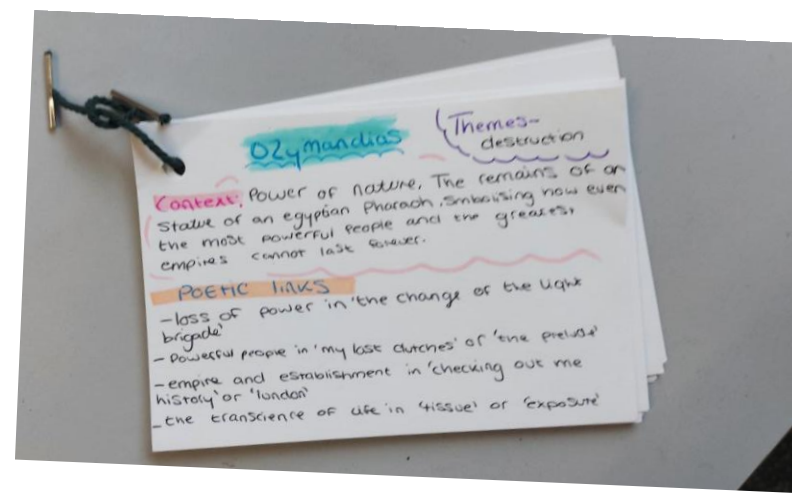 Ozymandias
Themes-
destruction
Context: Power of nature, The remains of an
statue of an egyptian Pharaoh, Smbolising how even
the most powerful people and the greatest
empires cannot last forever.
POETIC links
-loss of power in 'the change of the light
brigade'
- Powerful people in 'my last dutches' or 'the prelude'
- empire and establishment in 'checking out me
history' or 'london'
- the transcience of life in 'tissue' or 'exposure'